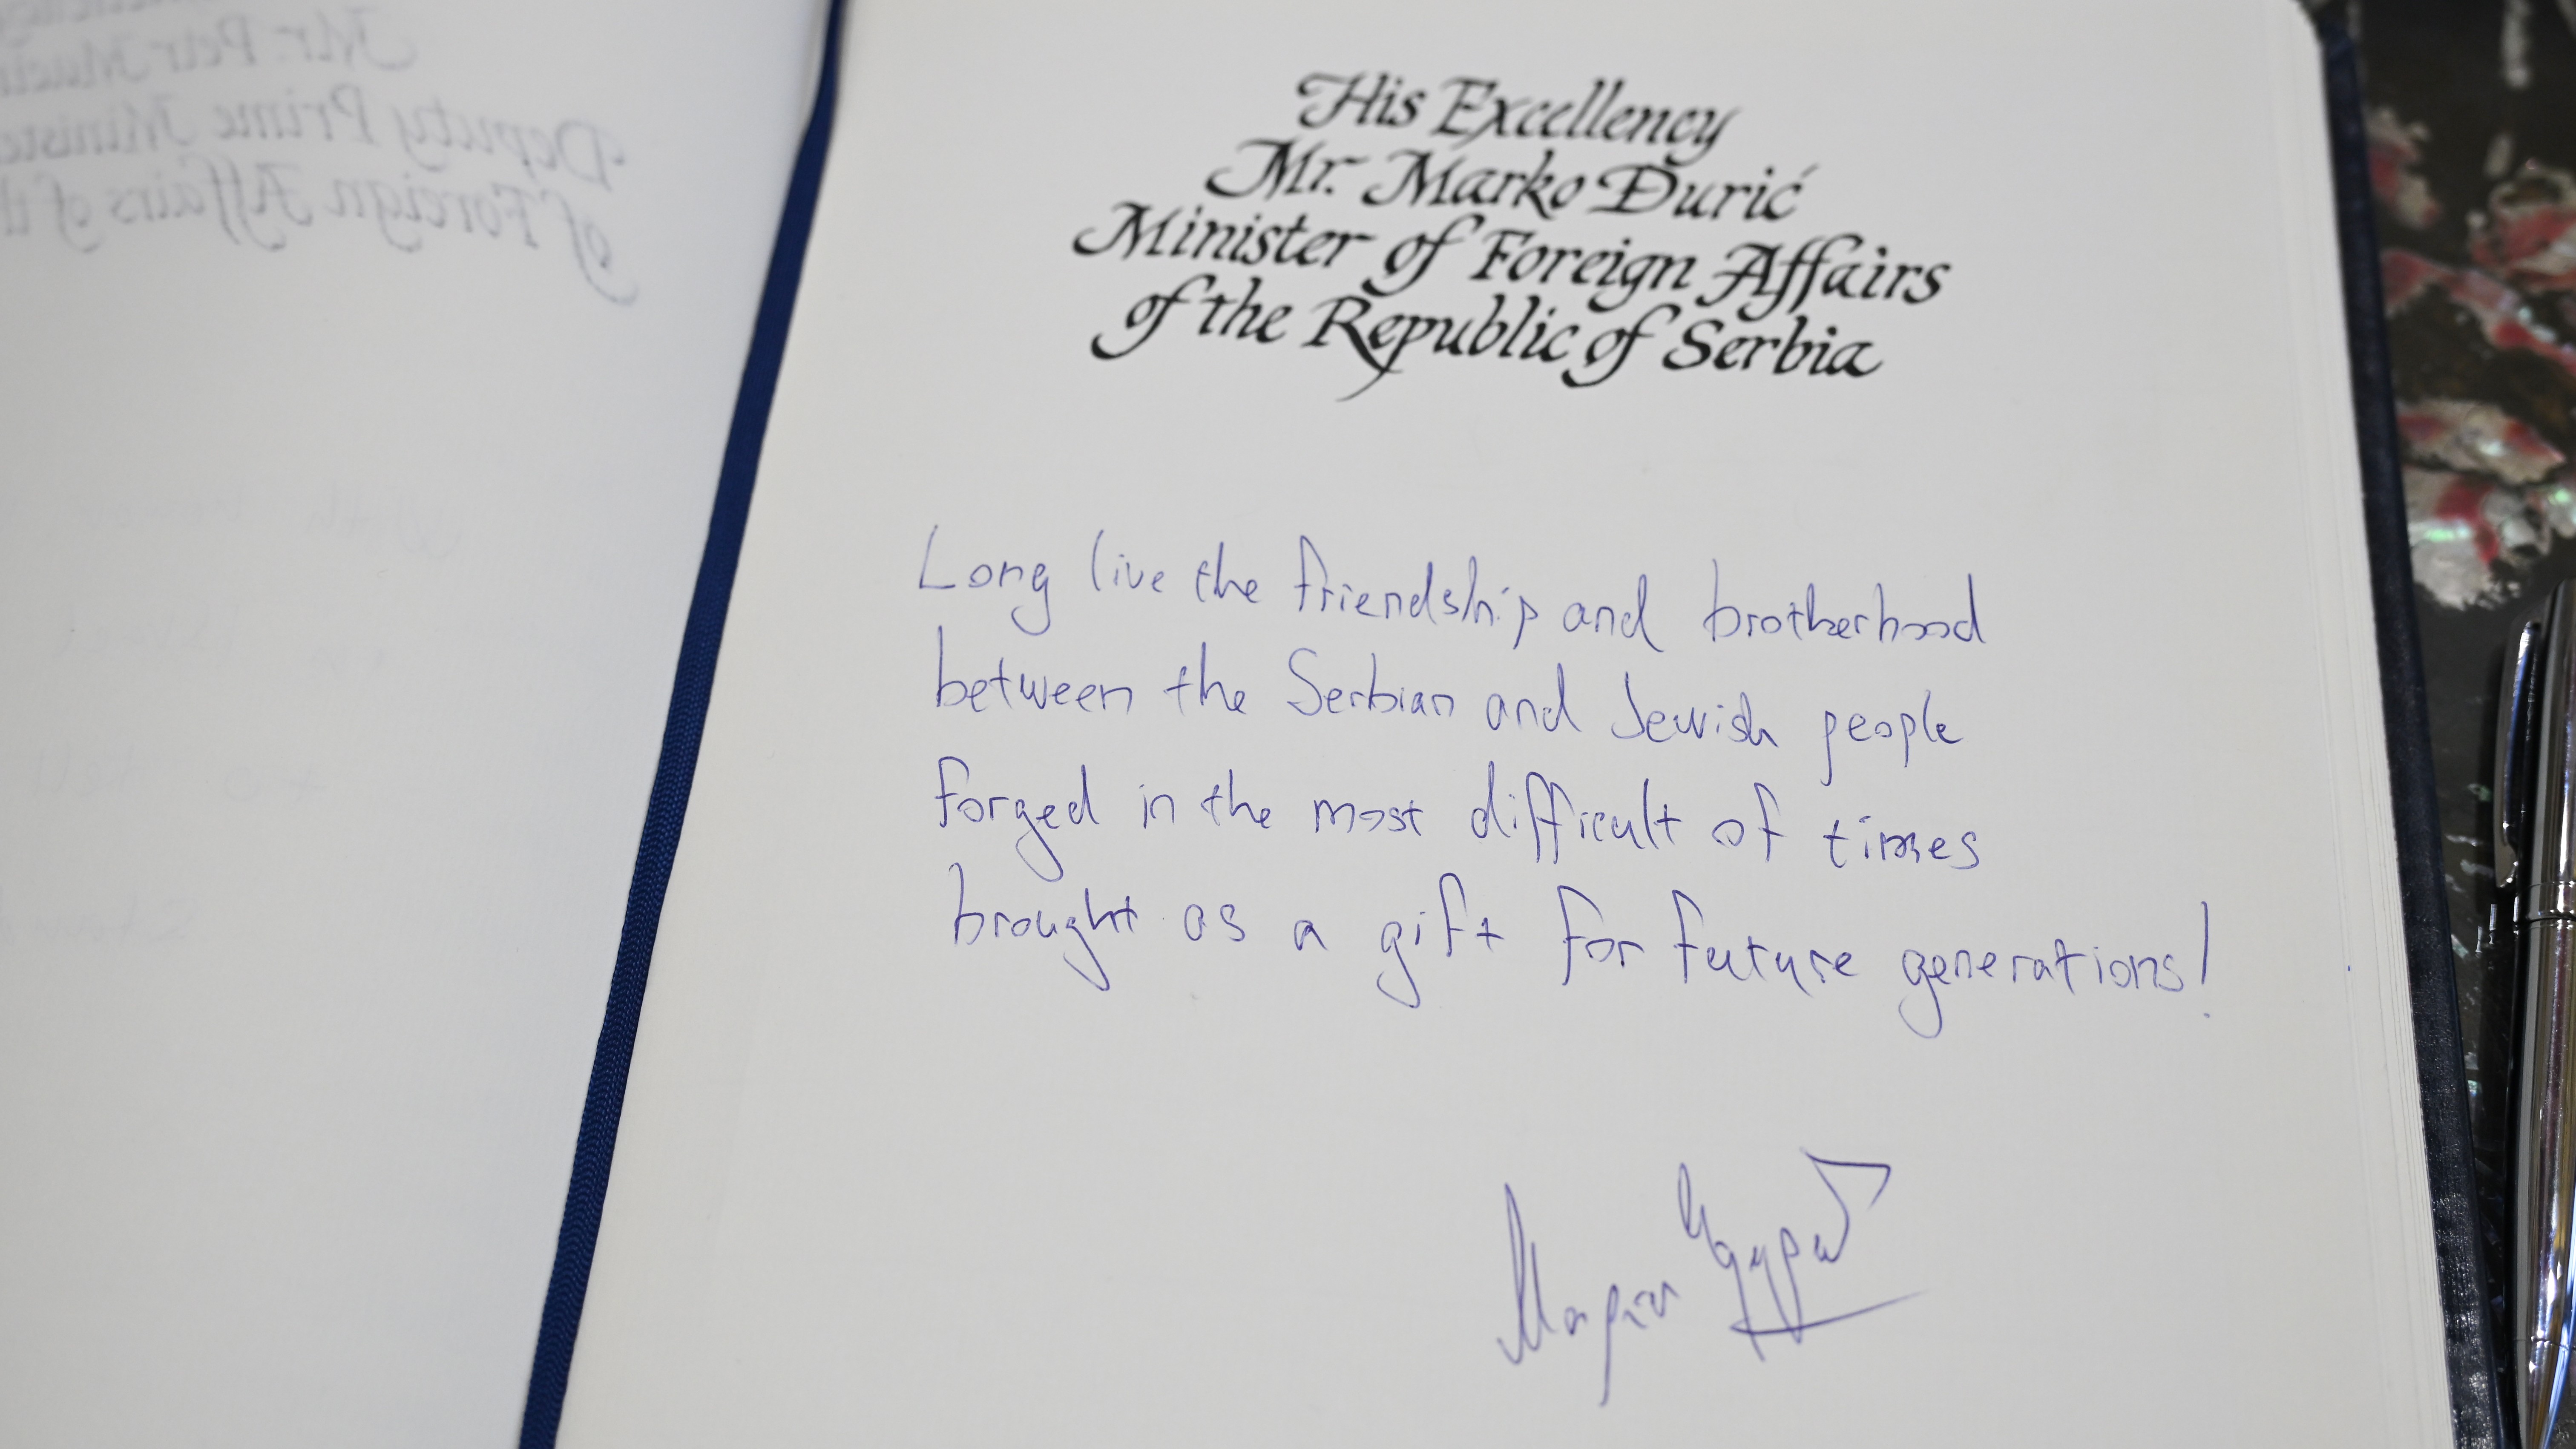 His Excellency
Mr. Marko Đurić
Minister of Foreign Affairs
of the Republic of Serbia
Long live the friendship and brotherhood
between the Serbian and Jewish people
forged in the most difficult of times
brought as a gift for future generations!
Mr. Petr
Deputy Prime
of Foreign Affairs of